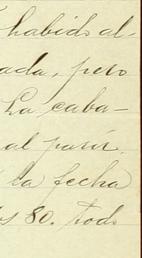 habido al-
ada, pero
La caba-
al parir.
la fecha
os 80. todo